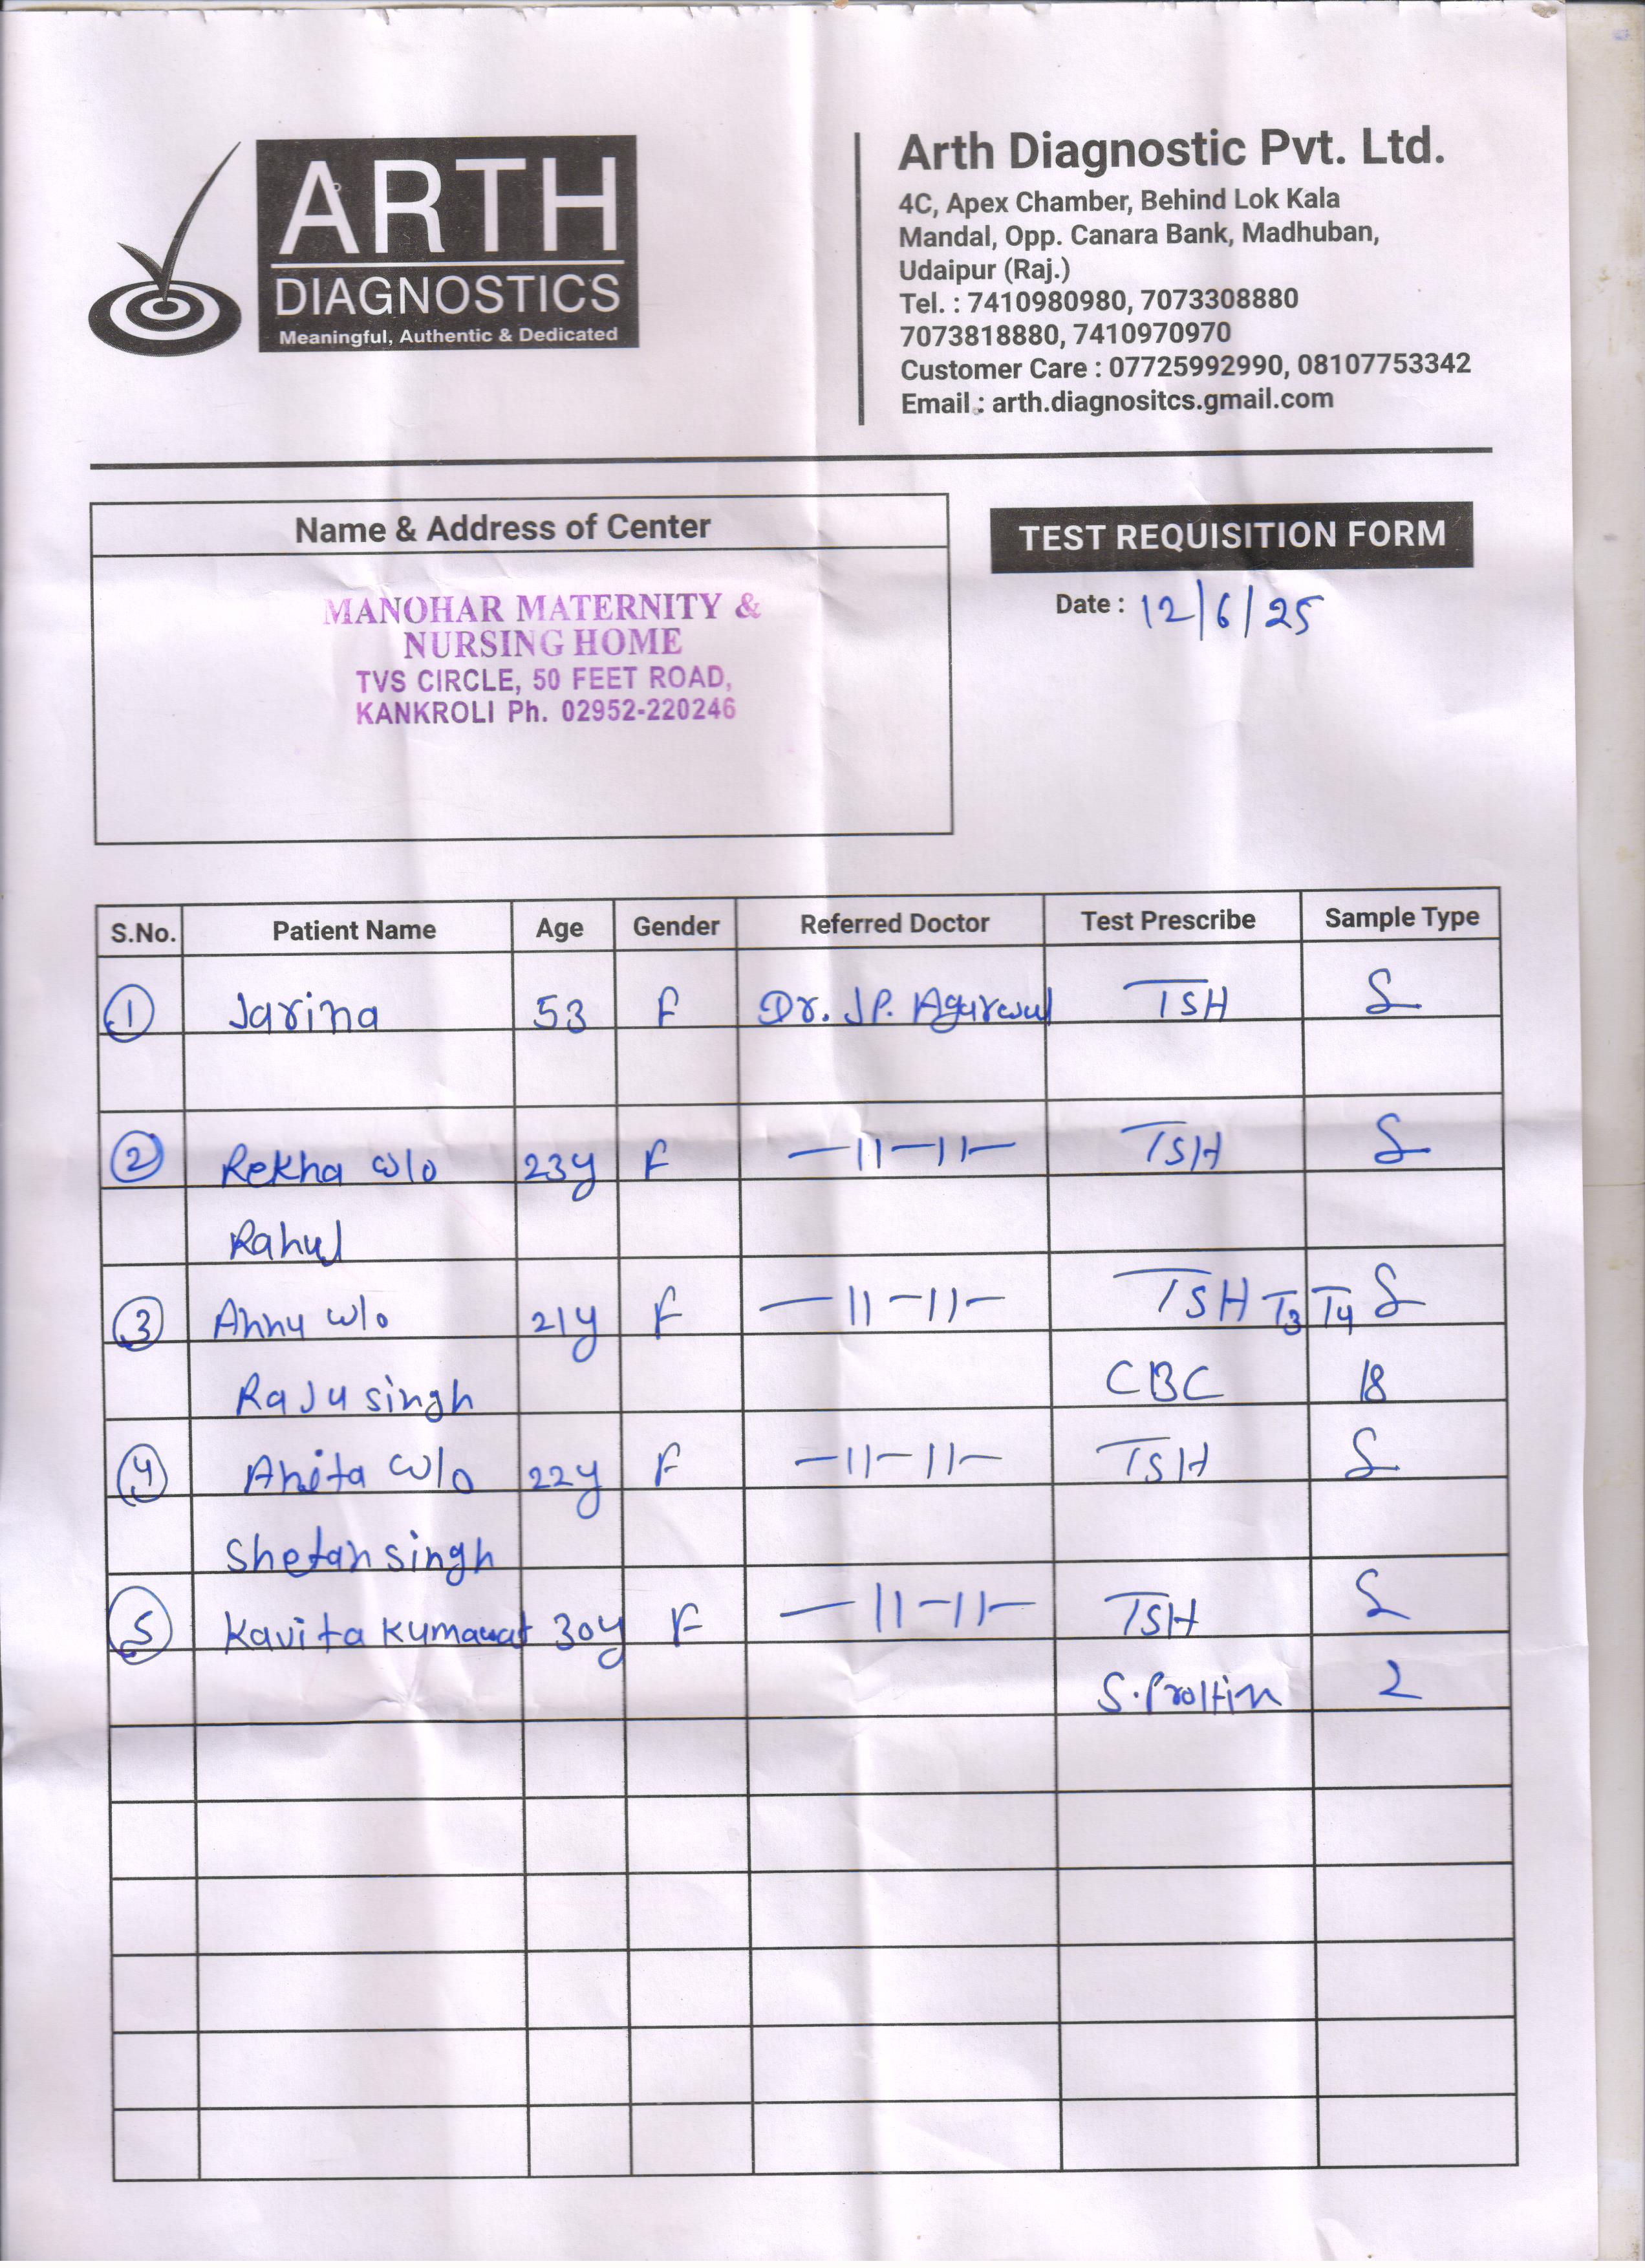 ARTH
DIAGNOSTICS
Meaningful, Authentic & Dedicated
Arth Diagnostic Pvt. Ltd.
4C, Apex Chamber, Behind Lok Kala
Mandal, Opp. Canara Bank, Madhuban,
Udaipur (Raj.)
Tel. : 7410980980, 7073308880
7073818880, 7410970970
Customer Care : 07725992990, 08107753342
Email : arth.diagnositcs.gmail.com
Name & Address of Center
MANOHAR MATERNITY &
NURSING HOME
TVS CIRCLE, 50 FEET ROAD,
KANKROLI Ph. 02952-220246
TEST REQUISITION FORM
Date : 12/6/25
S.No. Patient Name Age Gender Referred Doctor Test Prescribe Sample Type
1 Jarina 53 F Dr. J.P. Agarwal TSH S
2 Rekha w/o 23y F —11—11— TSH S
Rahul
3 Annu w/o 21y F —11—11— TSH T3 T4 S
Raju singh CBC
4 Anita w/o 22y F —11—11— TSH S
Shetan singh
5 Kavita Kumawat 30y F —11—11— TSH S